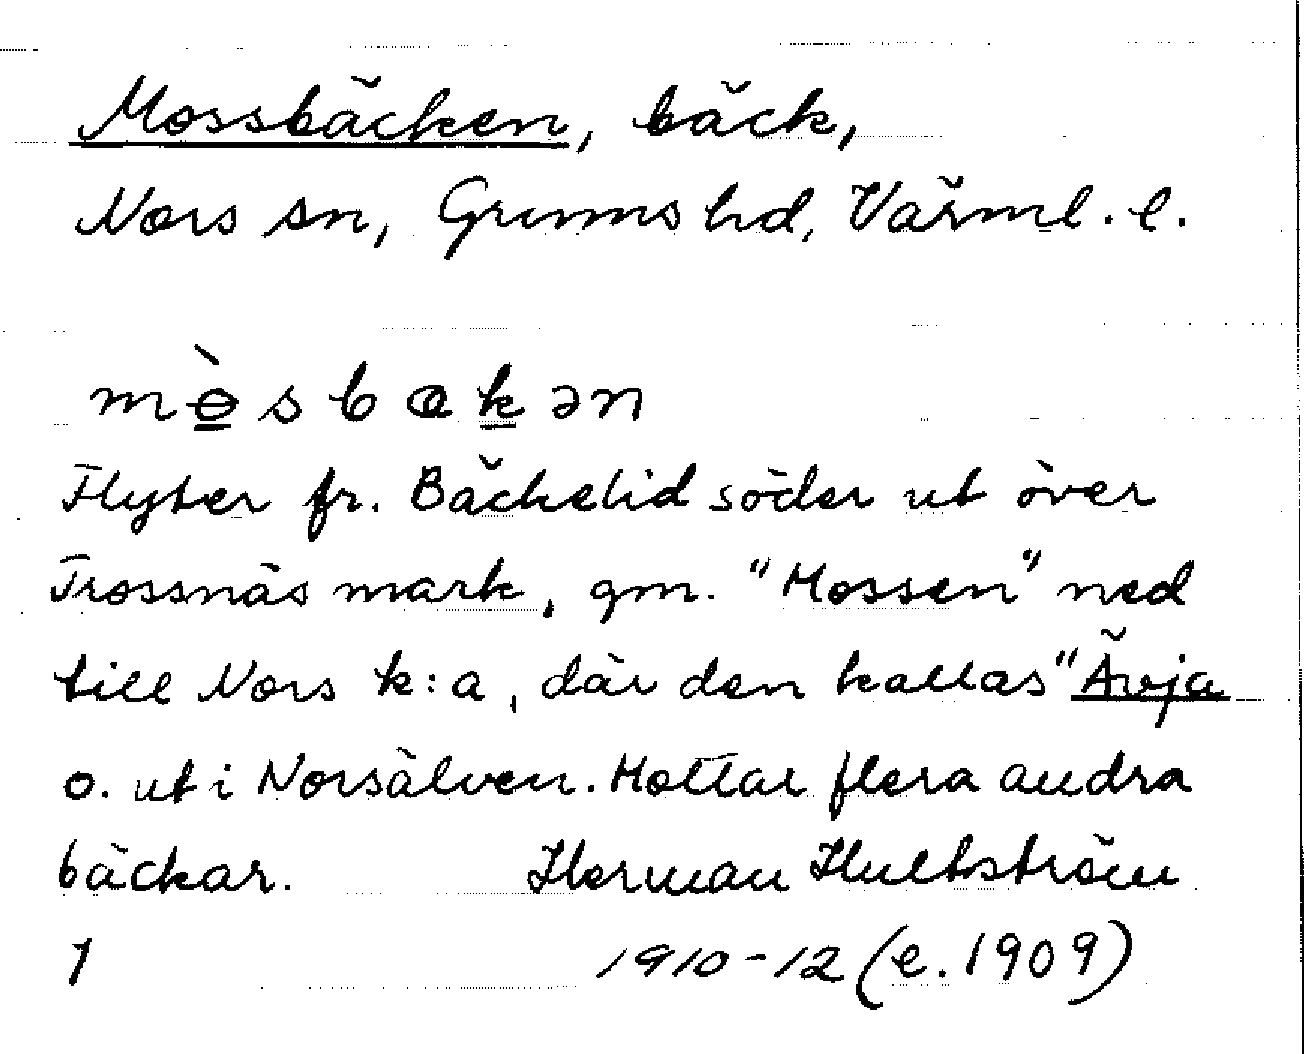 Mossbäcken, bäck,
Nors sn, Grums hd, Värml. l.
mò̲sbak̲ən
Flyter fr. Bäckelid söder ut över
Trossnäs mark, gm. "Mossen" ned
till Nors k:a, där den kallas "Ävja
o. ut i Norsälven. Mottar flera andra
bäckar. Herman Hultström
1 1910-12 (e. 1909)